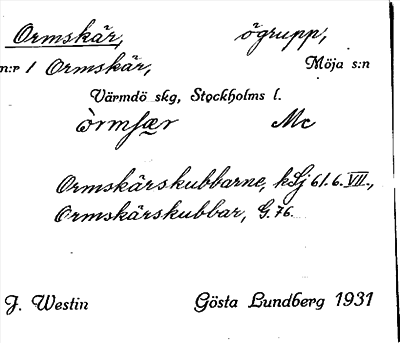 Ormskär, ögrupp,
n:r 1 Ormskär, Möja s:n
Värmdö skg, Stockholms l.
Mc
Ormskärskubbarne, kSj 61.6.VII.,
Ormskärskubbar, G.76.
J. Westin Gösta Lundberg 1931